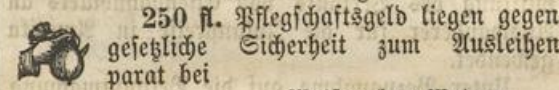 250 fl. Pflegschaftsgeld liegen gegen
gesetzliche Sicherheit zum Ausleihen
parat bei